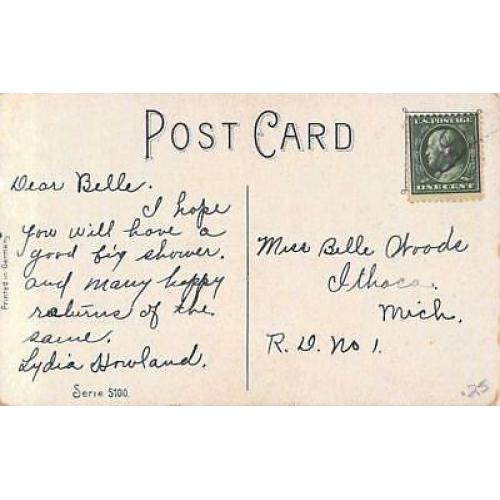 POST CARD
U.S. POSTAGE
ONE CENT
Dear Belle.
I hope
you will have a
good big shower.
and many happy
returns of the
same.
Lydia Howland.
Miss Belle Woods
Ithaca.
Mich.
R. D. No 1.
Printed in Germany
Serie 5100.
.25